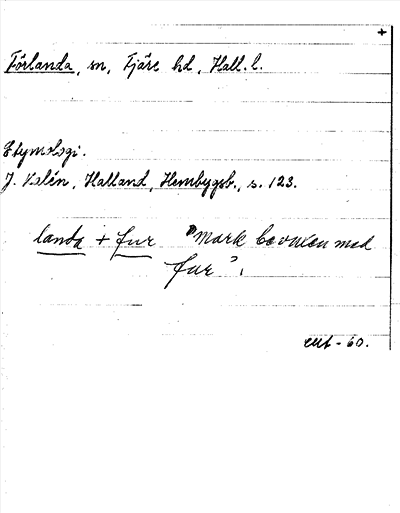 +
Förlanda, sn, Fjäre hd, Hall. l.
Etymologi.
J. Kalén, Halland, Hembygsb., s. 123.
landa + fur "Mark bevuxen med
fur".
-60.